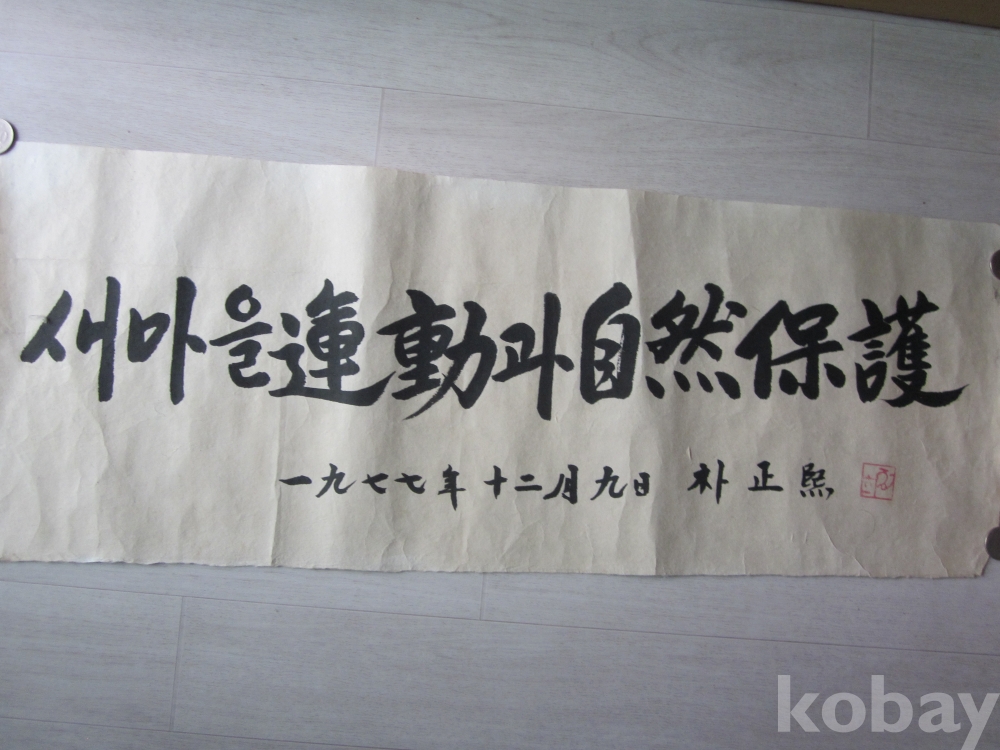 새마을運動과自然保護
一九七七年 十二月 九日 朴正熙
kobay